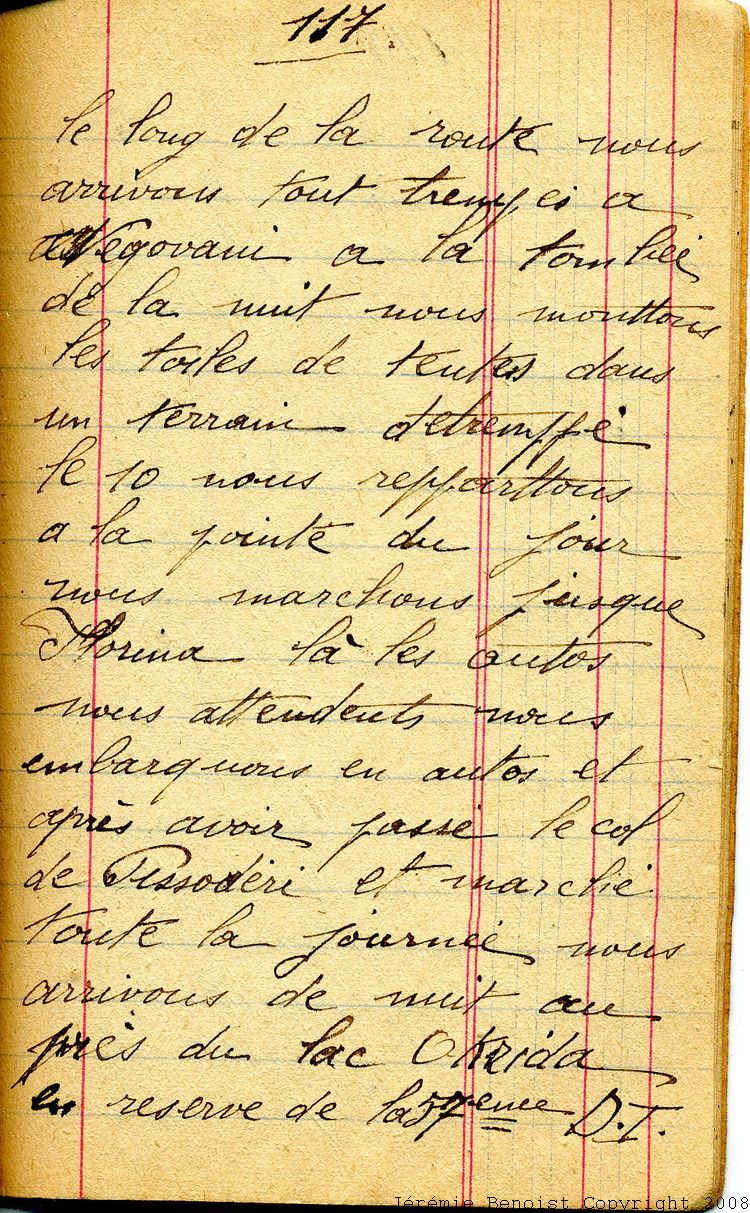 117
le long de la route nous
arrivons tout trempés a
Negovani a la tombée
de la nuit nous monttons
les toiles de tentes dans
un terrain detremppé
le 10 nous reppartons
a la pointe du jour
nous marchons jusque
Florina là les autos
nous attendents nous
embarquons en autos et
après avoir passé le col
de Pissodéri et marché
toute la journée nous
arrivons de nuit au
près du lac Okrida
en reserve de la 57eme D.I.
Jérémie Benoist Copyright 2008